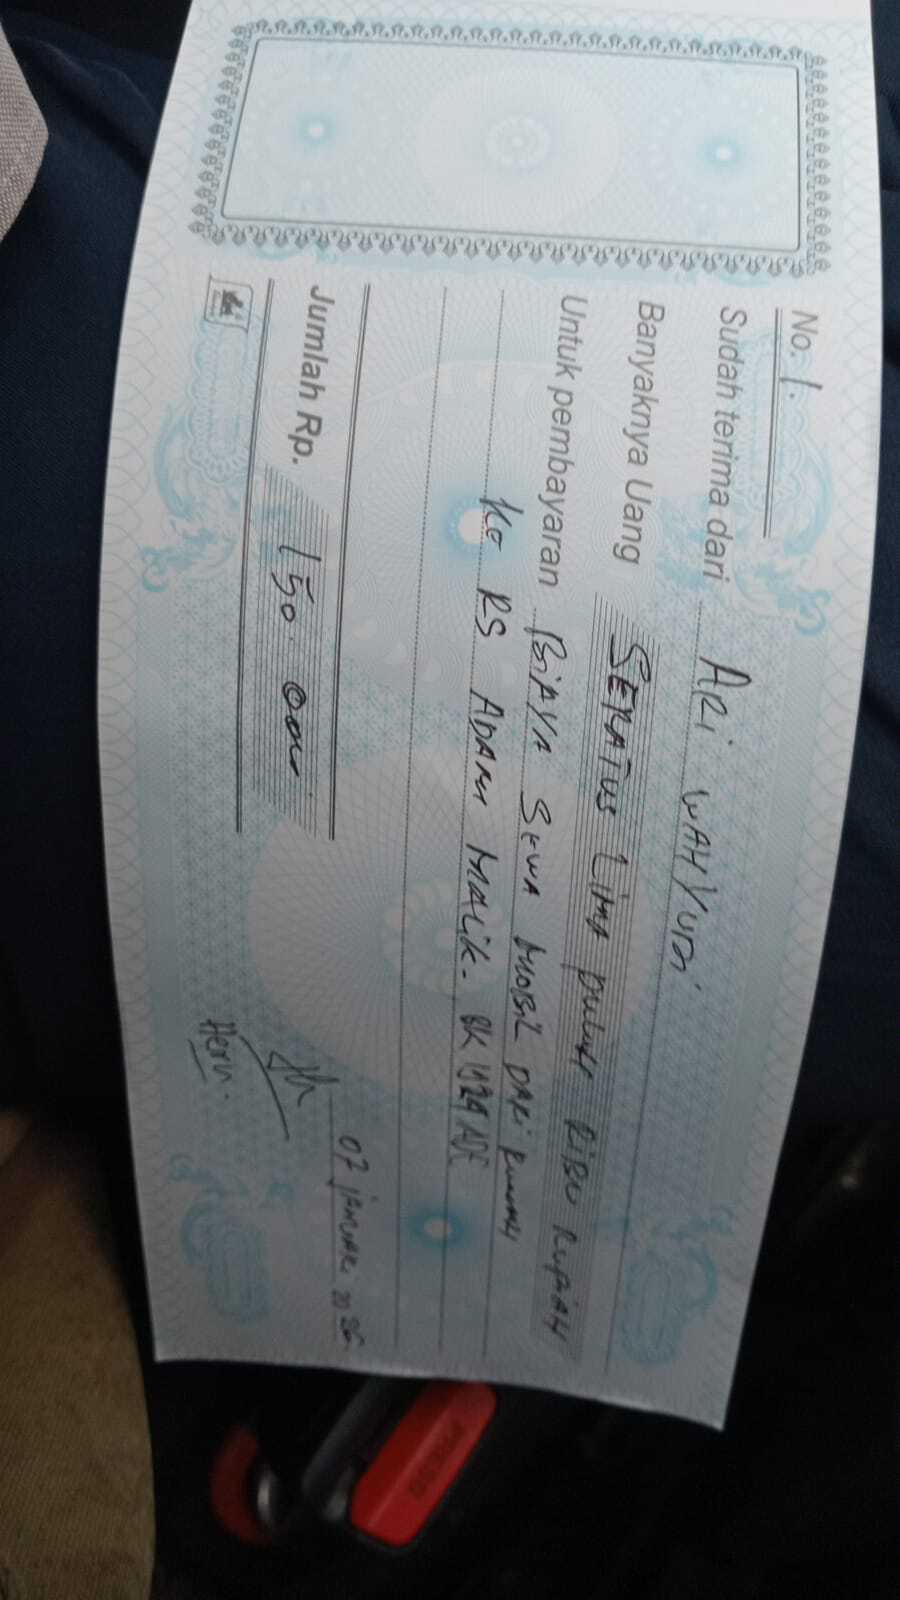 No. 1.
Sudah terima dari ARi WAHYUDi
Banyaknya Uang SERATUS Lima puluh RiBu RupiAH
Untuk pembayaran BiAYA SEWA MOBiL DARi RumAH
Ke RS ADAM MALiK. BK 1829
07 JANUARi 2026
Jumlah Rp. 150.000
Heru.
PRESS